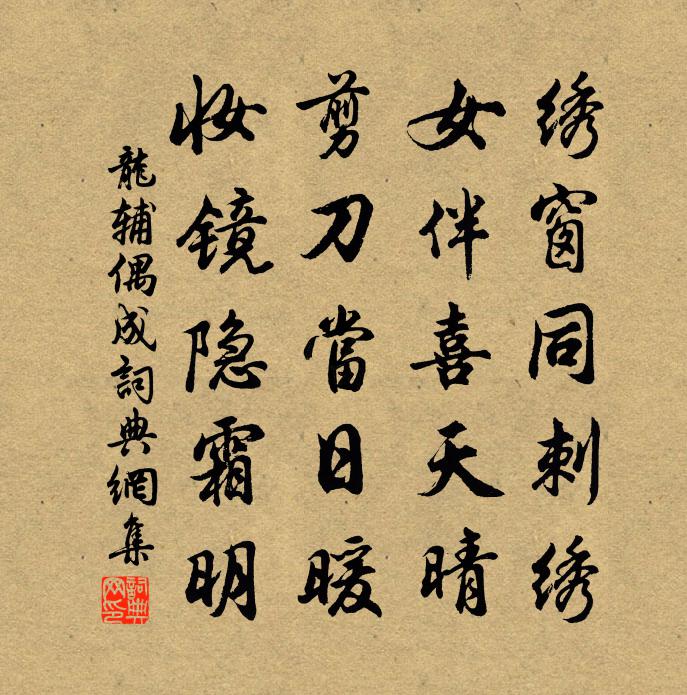 绣窗同刺绣
女伴喜天晴
剪刀當日暖
妆镜隐霜明
龍辅偶成詞典網集
詞典网印